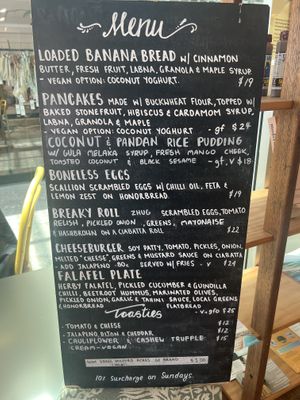 Menu
LOADED BANANA BREAD W/ CINNAMON
BUTTER, FRESH FRUIT, LABNA, GRANOLA & MAPLE SYRUP
- VEGAN OPTION: COCONUT YOGHURT. $19
PANCAKES MADE W/ BUCKWHEAT FLOUR, TOPPED W/
BAKED STONEFRUIT, HIBISCUS & CARDAMOM SYRUP,
LABNA, GRANOLA & MAPLE
- VEGAN OPTION: COCONUT YOGHURT - gf $24
COCONUT & PANDAN RICE PUDDING
W/ GULA MELAKA SYRUP, FRESH MANGO CHEEK,
TOASTED COCONUT & BLACK SESAME - gf, V $18
BONELESS EGGS
SCALLION SCRAMBLED EGGS W/ CHILLI OIL, FETA &
LEMON ZEST ON HONORBREAD $19
BREAKY ROLL ZHUG SCRAMBLED EGGS, TOMATO
RELISH, PICKLED ONION, GREENS, MAYONAISE
HASHBROWN ON A CIABATTA ROLL $22
CHEESEBURGER SOY PATTY, TOMATO, PICKLES, ONION,
MELTED "CHEESE", GREENS & MUSTARD SAUCE ON CIABATTA
+ ADD JALAPENO $0. SERVED W/ FRIES - V $24
FALAFEL PLATE
HERBY FALAFEL, PICKLED CUCUMBER & GUINDILLA
CHILLI, BEETROOT HUMMUS, MARINATED OLIVES,
PICKLED ONION, GARLIC & TAHINI SAUCE, LOCAL GREENS
& HONORBREAD FLATBREAD
- V, gfo $25
Toasties
- TOMATO & CHEESE $12
- JALAPENO, DIJON & CHEDDAR $12
- CAULIFLOWER & CASHEW TRUFFLE $15
CREAM - VEGAN
OF BREAD
10% Surcharge on Sundays.